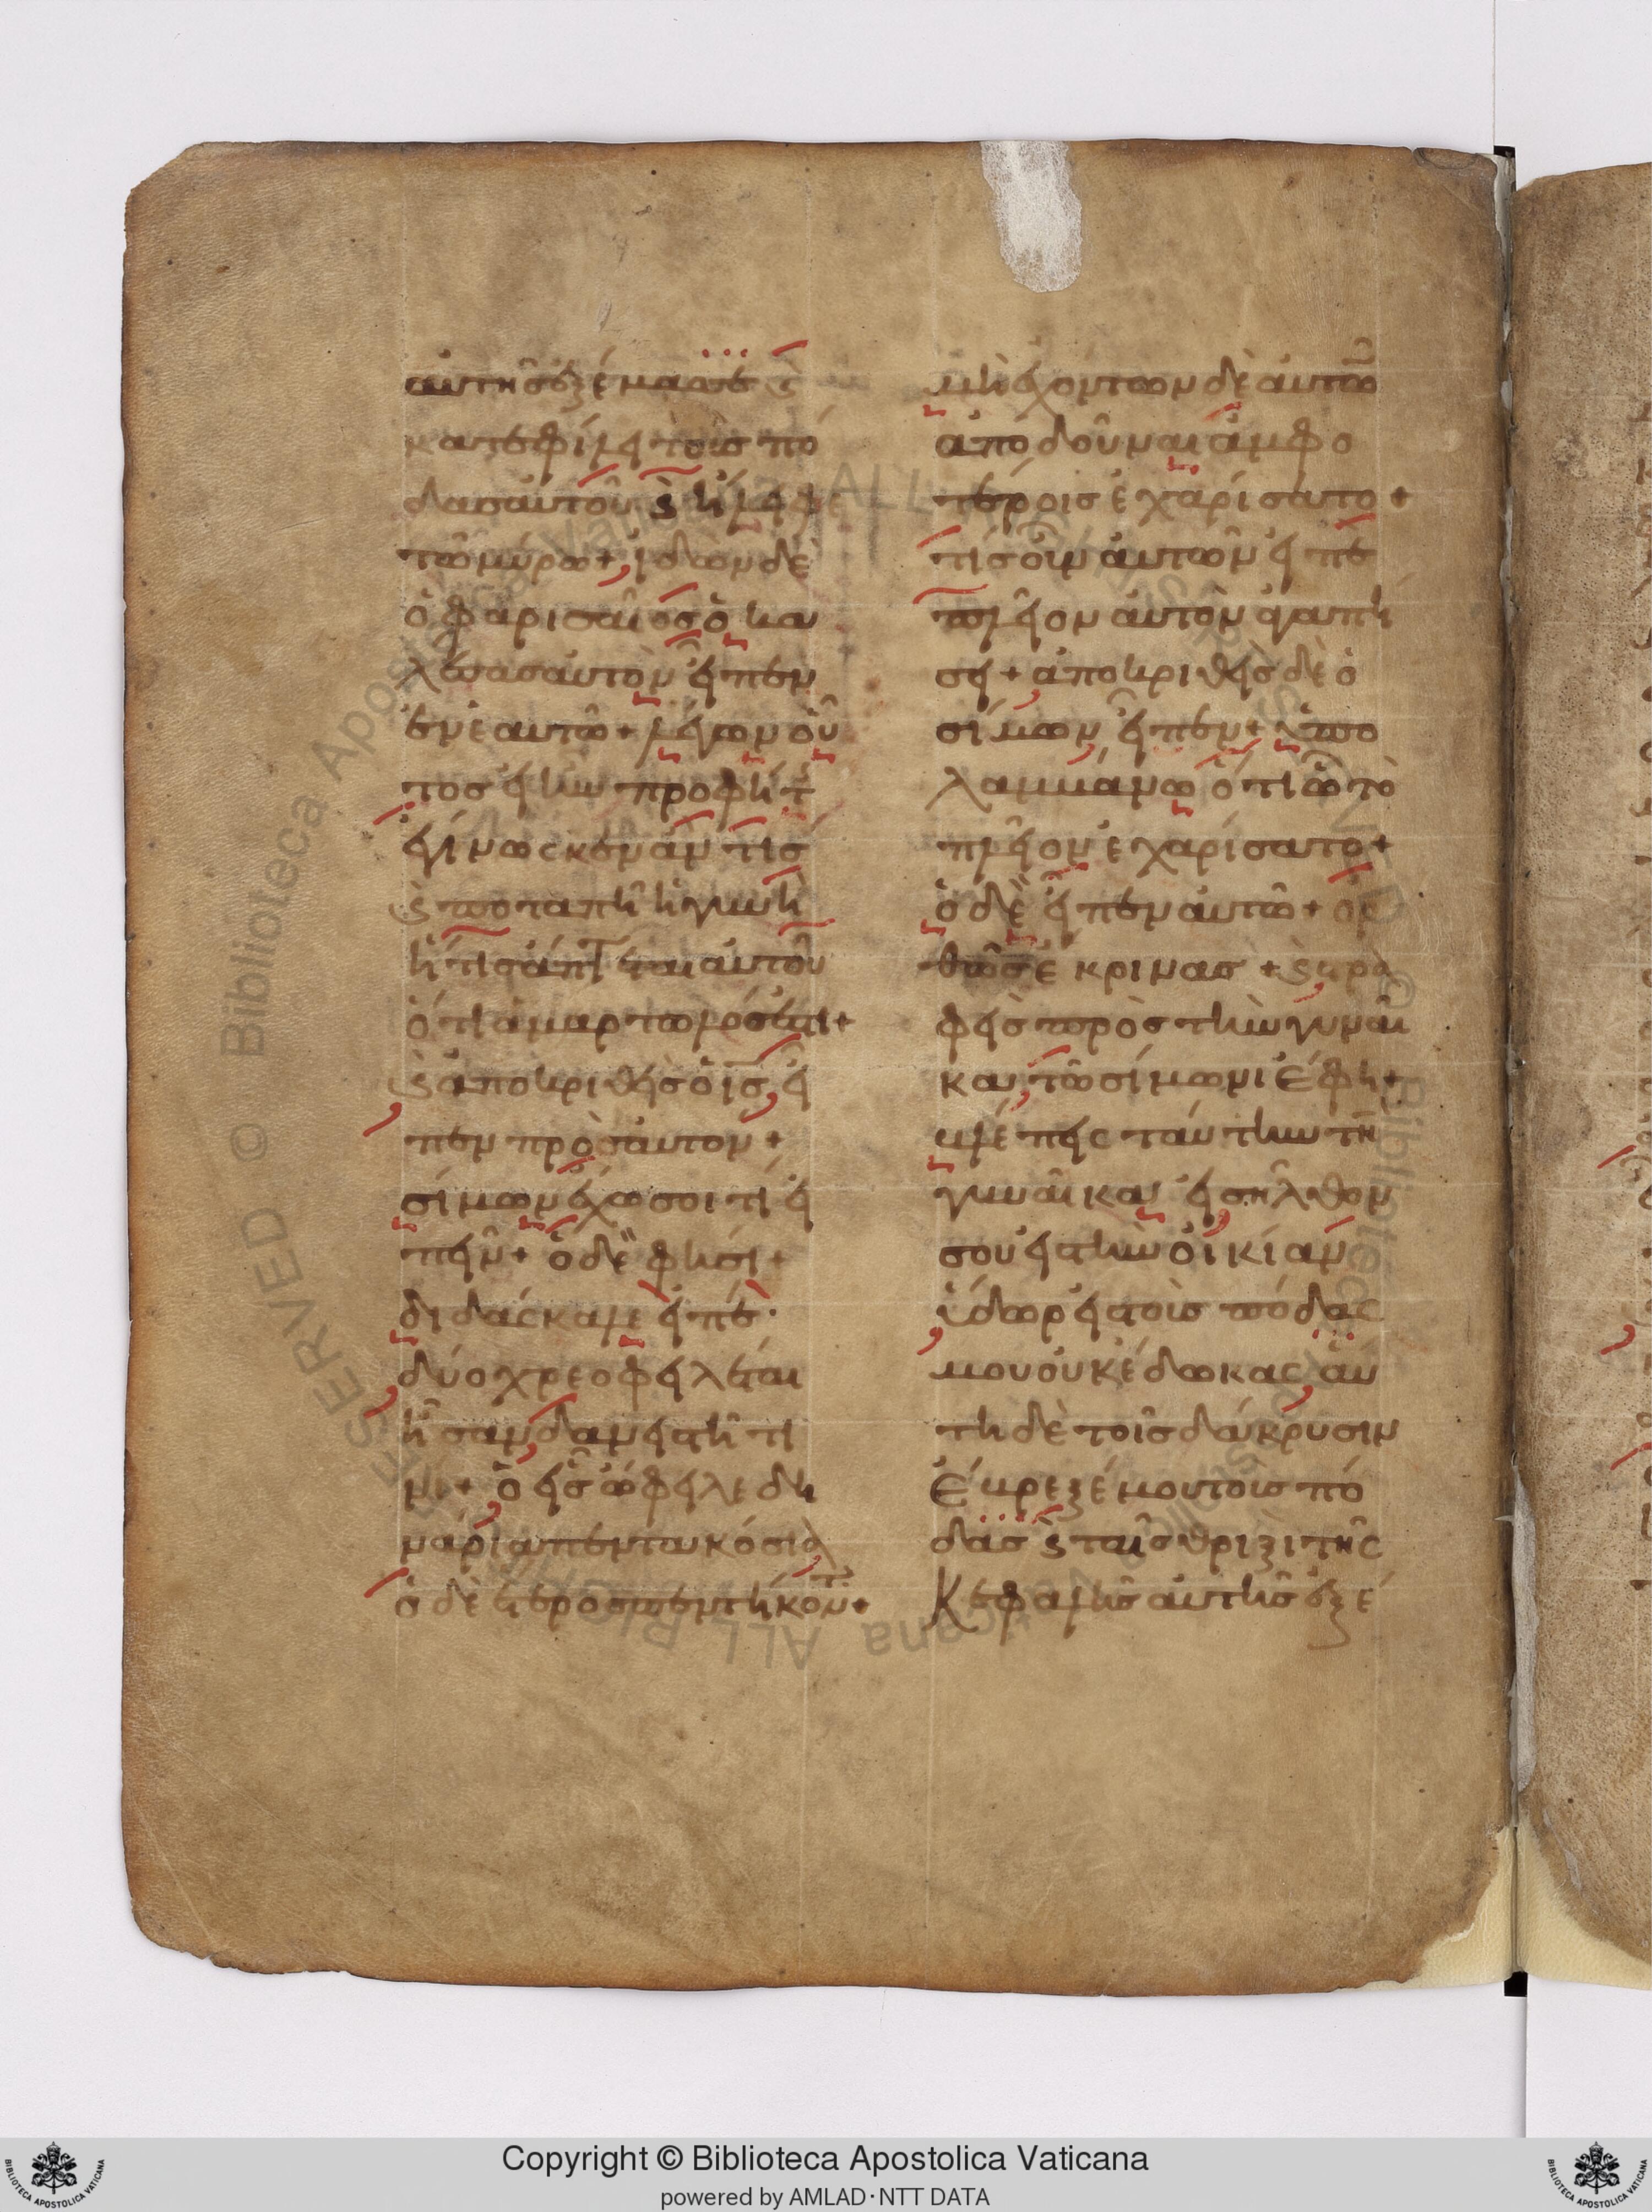 αὐτῆς ἐξέμασσε ϗ
κατεφίλει τοὺς πό
δας αὐτοῦ ϗ ἤλειφε
τῶ μύρω + ἰδὼν δὲ
ὁ φαρισαῖος ὁ κα
λέσας αὐτὸν εἶπεν
ἐν ἑαυτῶ + λέγων οὗ
τος εἰ ἦν προφήτ
ἐγίνωσκεν ἂν τίς
ϗ ποταπὴ ἡ γυνὴ
ἥτις ἅπτεται αὐτοῦ
ὅτι ἁμαρτωλός ἐστι +
ϗ ἀποκριθεὶς ὁ ις εἶ
πεν πρὸς αὐτον +
σίμων ἔχω σοι τί εἰ
πεῖν + ὁ δὲ φησι +
διδάσκαλε εἰπέ ·
δύο χρεοφειλέται
ἦσαν δανειστῆ τι
νι + ὁ εἷς ὤφειλε δη
νάρια πεντακόσια
ὁ δὲ ἕτερος πεντήκοντ +
μὴ ἐχόντων δὲ αὐτῶ
ἀποδοῦναι ἀμφο
τέροις ἐχαρίσατο +
τίς οὖν αὐτῶν εἰπὲ
πλεῖον αὐτὸν ἀγαπή
σει + ἀποκριθεὶς δὲ ὁ
σίμων εἶπεν + ὑπο
λαμμάνω ὅτι ὧ τὸ
πλεῖον ἐχαρίσατο +
ὁ δὲ εἶπεν αὐτῶ + ὀρ
θῶς ἔκρινας + ϗ στρα
φεὶς πρὸς τὴν γυναῖ
κα τῶ σίμωνι ἔφη +
βλέπεις ταύτην τὴν
γυναῖκα εἰσῆλθον
σου εἰς τὴν οἰκίαν
ὕδωρ εἰς τοὺς πόδας
μου οὐκ ἔδωκας αὕ
τη δὲ τοῖς δάκρυσιν
ἔβρεξέ μου τοὺς πό
δας ϗ ταῖς θριξὶ τῆς
Κεφαλῆς αὐτῆς ἐξέ
Copyright © Biblioteca Apostolica Vaticana
powered by AMLAD·NTT DATA